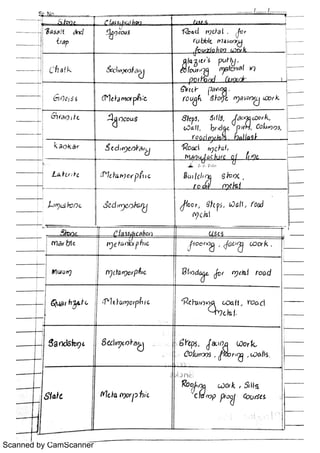 Stone Classification Uses
Basalt and trap Igneous Road metal, for rubble masonry foundation work
Chalk Sedimentary glazier's putty, colouring material in portland cement
Gneiss Metamorphic Street paving, rough stone masonry work
Granite Igneous Steps, Sills, facing work, wall, bridge piers, columns, road metals ballast
Kankar Sedimentary Road metal, manufacture of lime
Laterite Metamorphic Building stone, road metal
Limestone Sedimentary floor, steps, wall, road metal
Stone Classification Uses
Marble metamorphic flooring, facing work.
Muram metamorphic Blindage for metal road
Quartzite Metamorphic Retaining wall, road metal.
Sandstone Sedimentary Steps, facing work, columns, flooring, walls.
Slate Metamorphic Roofing work, Sills damp proof courses
Scanned by CamScanner